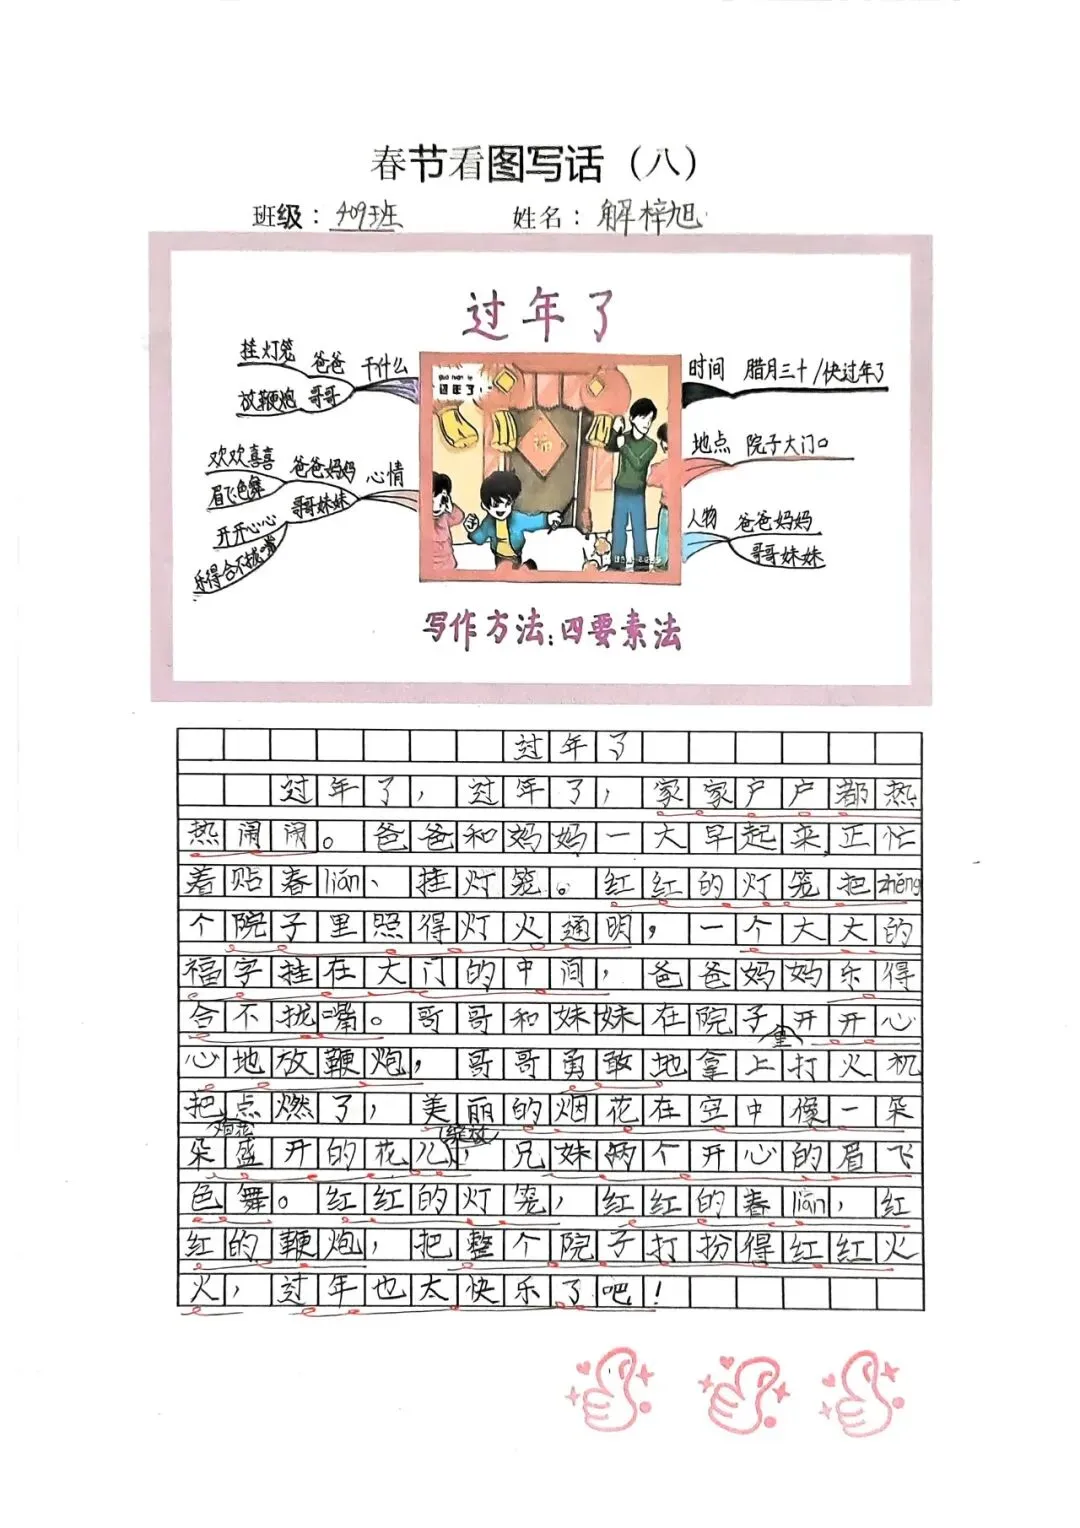 春节看图写话（八）
班级：409班 姓名：解梓旭
过年了
挂灯笼 爸爸 干什么
放鞭炮 哥哥
欢欢喜喜 爸爸妈妈 心情
眉飞色舞 哥哥妹妹
开开心心
乐得合不拢嘴
guo nian le
过年了
福
时间 腊月三十/快过年了
地点 院子大门口
人物 爸爸妈妈
哥哥妹妹
写作方法：四要素法
过年了
过年了，过年了，家家户户都热
热闹闹。爸爸和妈妈一大早起来,正忙
着贴春lián、挂灯笼。红红的灯笼把zhěng
个院子里照得灯火通明，一个大大的
福字挂在大门的中间，爸爸妈妈乐得
合不拢嘴。哥哥和妹妹在院子里开开心
心地放鞭炮，哥哥勇敢地拿上打火机
把点燃了，美丽的烟花在空中像一朵
烟花 绽放
朵盛开的花儿，兄妹两个开心的眉飞
色舞。红红的灯笼，红红的春lián，红
红的鞭炮，把整个院子打扮得红红火
火，过年也太快乐了吧！